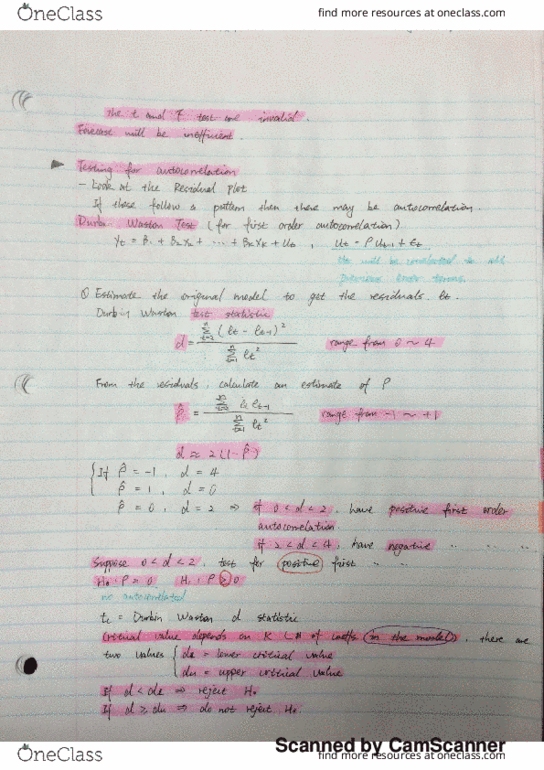 OneClass
find more resources at oneclass.com
the t and F test are invalid.
Forecase will be inefficient.
Testing for autocorrelation
- Look at the Residual Plot
If these follow a pattern then there may be autocorrelation.
Durbin Waston Test (for first order autocorrelation)
Yt = B1 + B2X2 + ... + BkXk + Ut , Ut = ρ Ut-1 + εt
Ut will be correlated to all
previous error terms.
① Estimate the original model to get the residuals. et.
Durbin Waston test statistic
d = Σ(et - et-1)² / Σ et² range from 0 ~ 4
From the residuals, calculate an estimate of ρ
ρ̂ = Σ et et-1 / Σ et² range from -1 ~ +1
d ≈ 2(1-ρ̂)
If ρ̂ = -1, d = 4
ρ̂ = 1, d = 0
ρ̂ = 0, d = 2 ⇒ if 0 < d < 2, have positive first order
autocorrelation.
if 2 < d < 4, have negative .. .. ..
Suppose 0 < d < 2, test for positive first ..
H0: ρ = 0 H1: ρ > 0
no autocorrelated
tc = Durbin Waston d statistic
Critical value depends on K (# of coeffs in the model), there are
two values { dL = lower critical value
du = upper critical value
If d < dL ⇒ reject H0
If d ≥ du ⇒ do not reject H0.
Scanned by CamScanner
OneClass
find more resources at oneclass.com